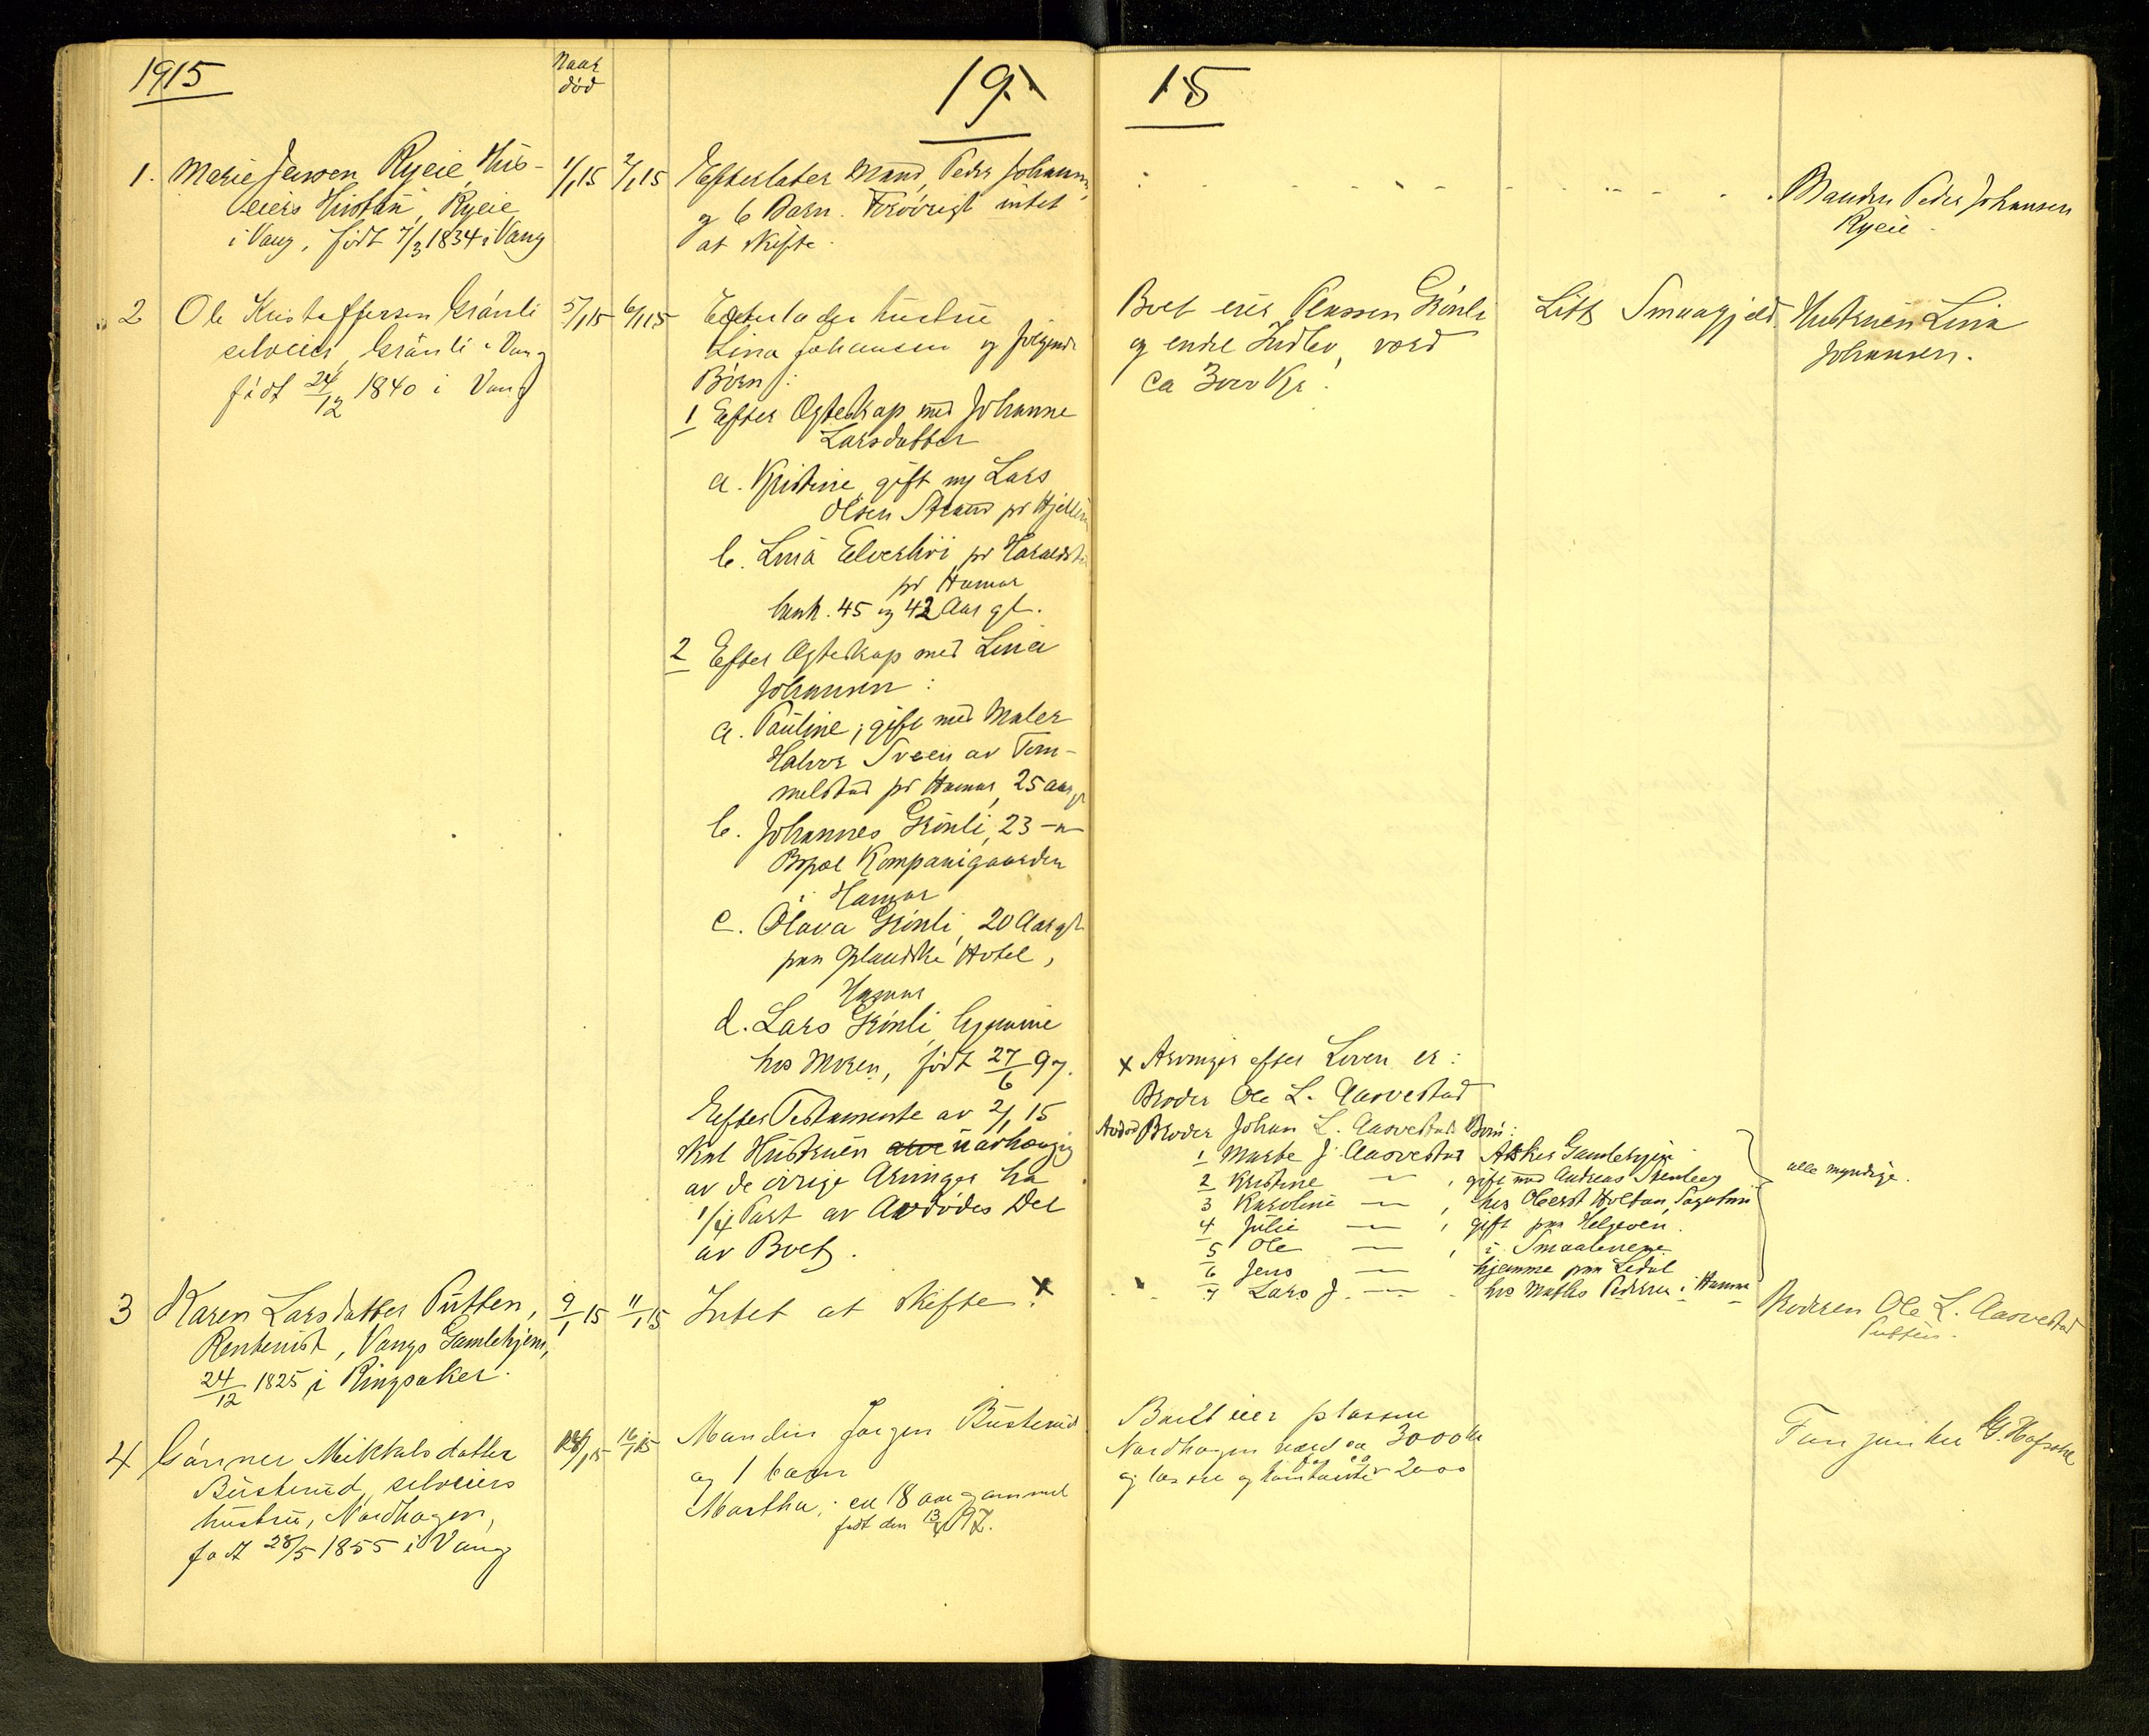 1915
Naar
død
19
15
1. Marie Jensen Ryeie, Hus-
eiers Hustru, Ryeie
i Vang, født 7/3 1834 i Vang
1/1 15
2/1 15
Efterlater Mand, Peder Johansen
og 6 Barn. Forøvrigt intet
at skifte.
Manden Peder Johansen
Ryeie.
2 Ole Kristoffersen Grønli
selveier, Grønli i Vang
født 24/12 1840 i Vang
5/1 15
6/1 15
Efterlader hustru
Lina Johansen og følgende
Børn:
1 Efter Ægteskap med Johanne
Larsdatter
a. Kristine, gift m/ Lars
Olsen Strand pr Hjellum
b. Lina Elverhøi, pr
pr Hamar
henh. 45 og 42 Aar gl.
2 Efter Ægteskap med Lina
Johansen:
a. Pauline, gift med Maler
Halvor Sveen av Tom-
melstad pr Hamar, 25 aar gl
b. Johannes Grønli, 23 -"-
Bopæl Kompanigaarden
i Hamar
c. Olava Grønli, 20 Aar gl
paa Hotel,
Hamar
d. Lars Grønli, hjemme
hos Moren, født 27/6 97.
Efter Testamente av 2/1 15
skal Hustruen uavhængig
av de øvrige Arvinger ha
1/4 Part av Avdødes Del
av Boet.
Boet eier Plassen Grønli
og endel Indbo, værd
ca 3000 Kr.
Litt Smaagjeld.
Hustruen Lina
Johansen.
x Arvinger efter Loven er:
Broder Ole L. Aasvestad
Avdød Broder Johan L. Aasvestads Børn:
1 Marte J. Aasvestad Gamlehjem
2 Kristine — , gift med Andreas Stenberg
3 Karoline — , hos Oberst Holtan,
4 Julie — , gift paa Helgøen.
5 Ole — , i Smaalenene
6 Jens — hjemme paa
7 Lars J. — hos Mathis Pedersen i Hamar
alle myndige.
3 Karen Larsdatter Putten,
Rentenist, Vangs Gamlehjem,
24/12 1825 i Ringsaker.
9/1 15
11/1 15
Intet at skifte. x
Broderen Ole L. Aasvestad
Putten.
4 Gunner Mikkelsdatter
Busterud, selveiers
hustru, Nordhagen,
født 28/5 1855 i Vang
16/1 15
Manden Jørgen Busterud
og 1 barn
Martha, ca 18 aar gammel
født den 13/4 97.
Boet eier plassen
Nordhagen værd ca 3000 kr
og løsøre og ca 2000
G. Hafsahl